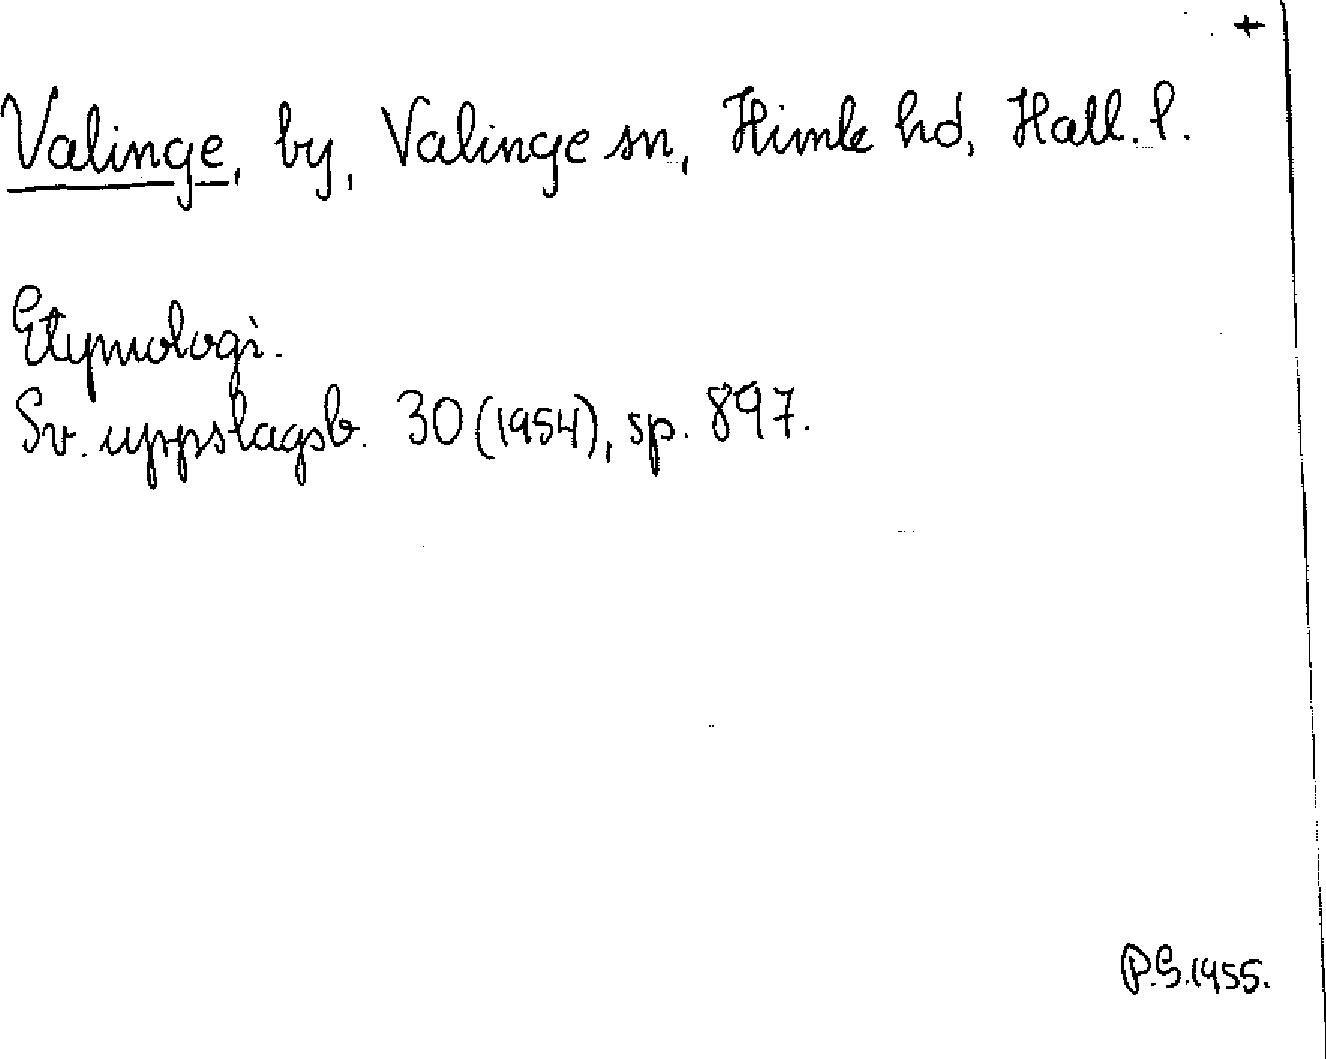 +
Valinge, by, Valinge sn, Himle hd, Hall. l.
Etymologi.
Sv. uppslagsb. 30 (1954), sp. 897.
P.S. 1955.